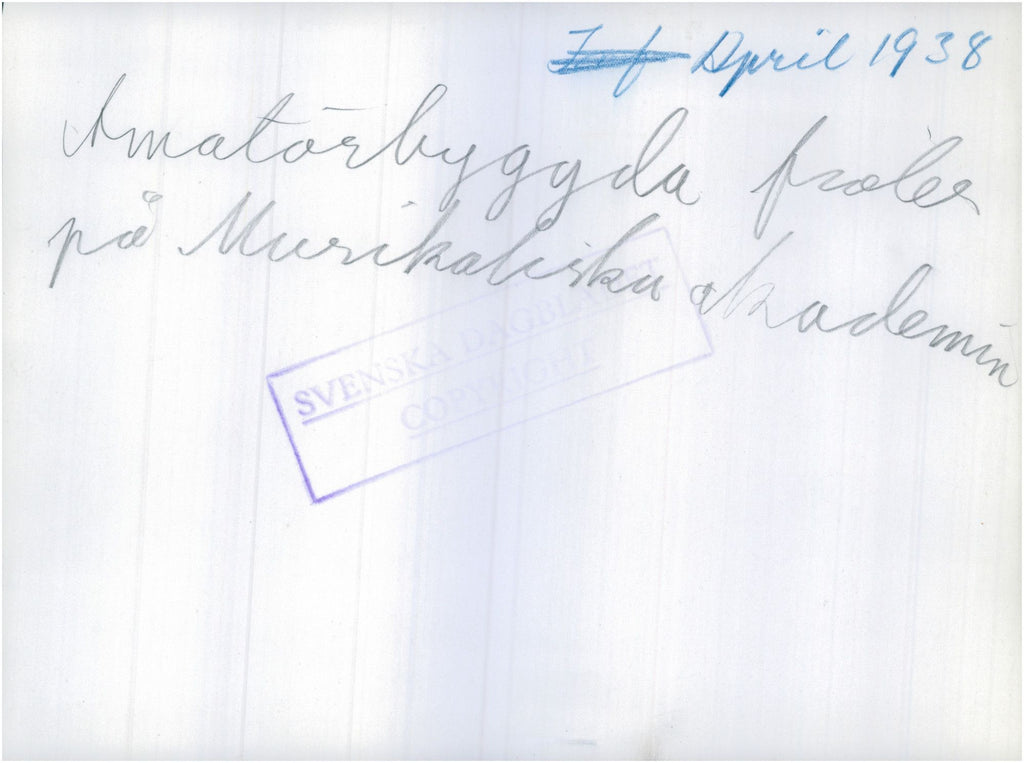 April 1938
Amatörbyggda fioler
på Musikaliska akademin
SVENSKA DAGBLADET
COPYRIGHT